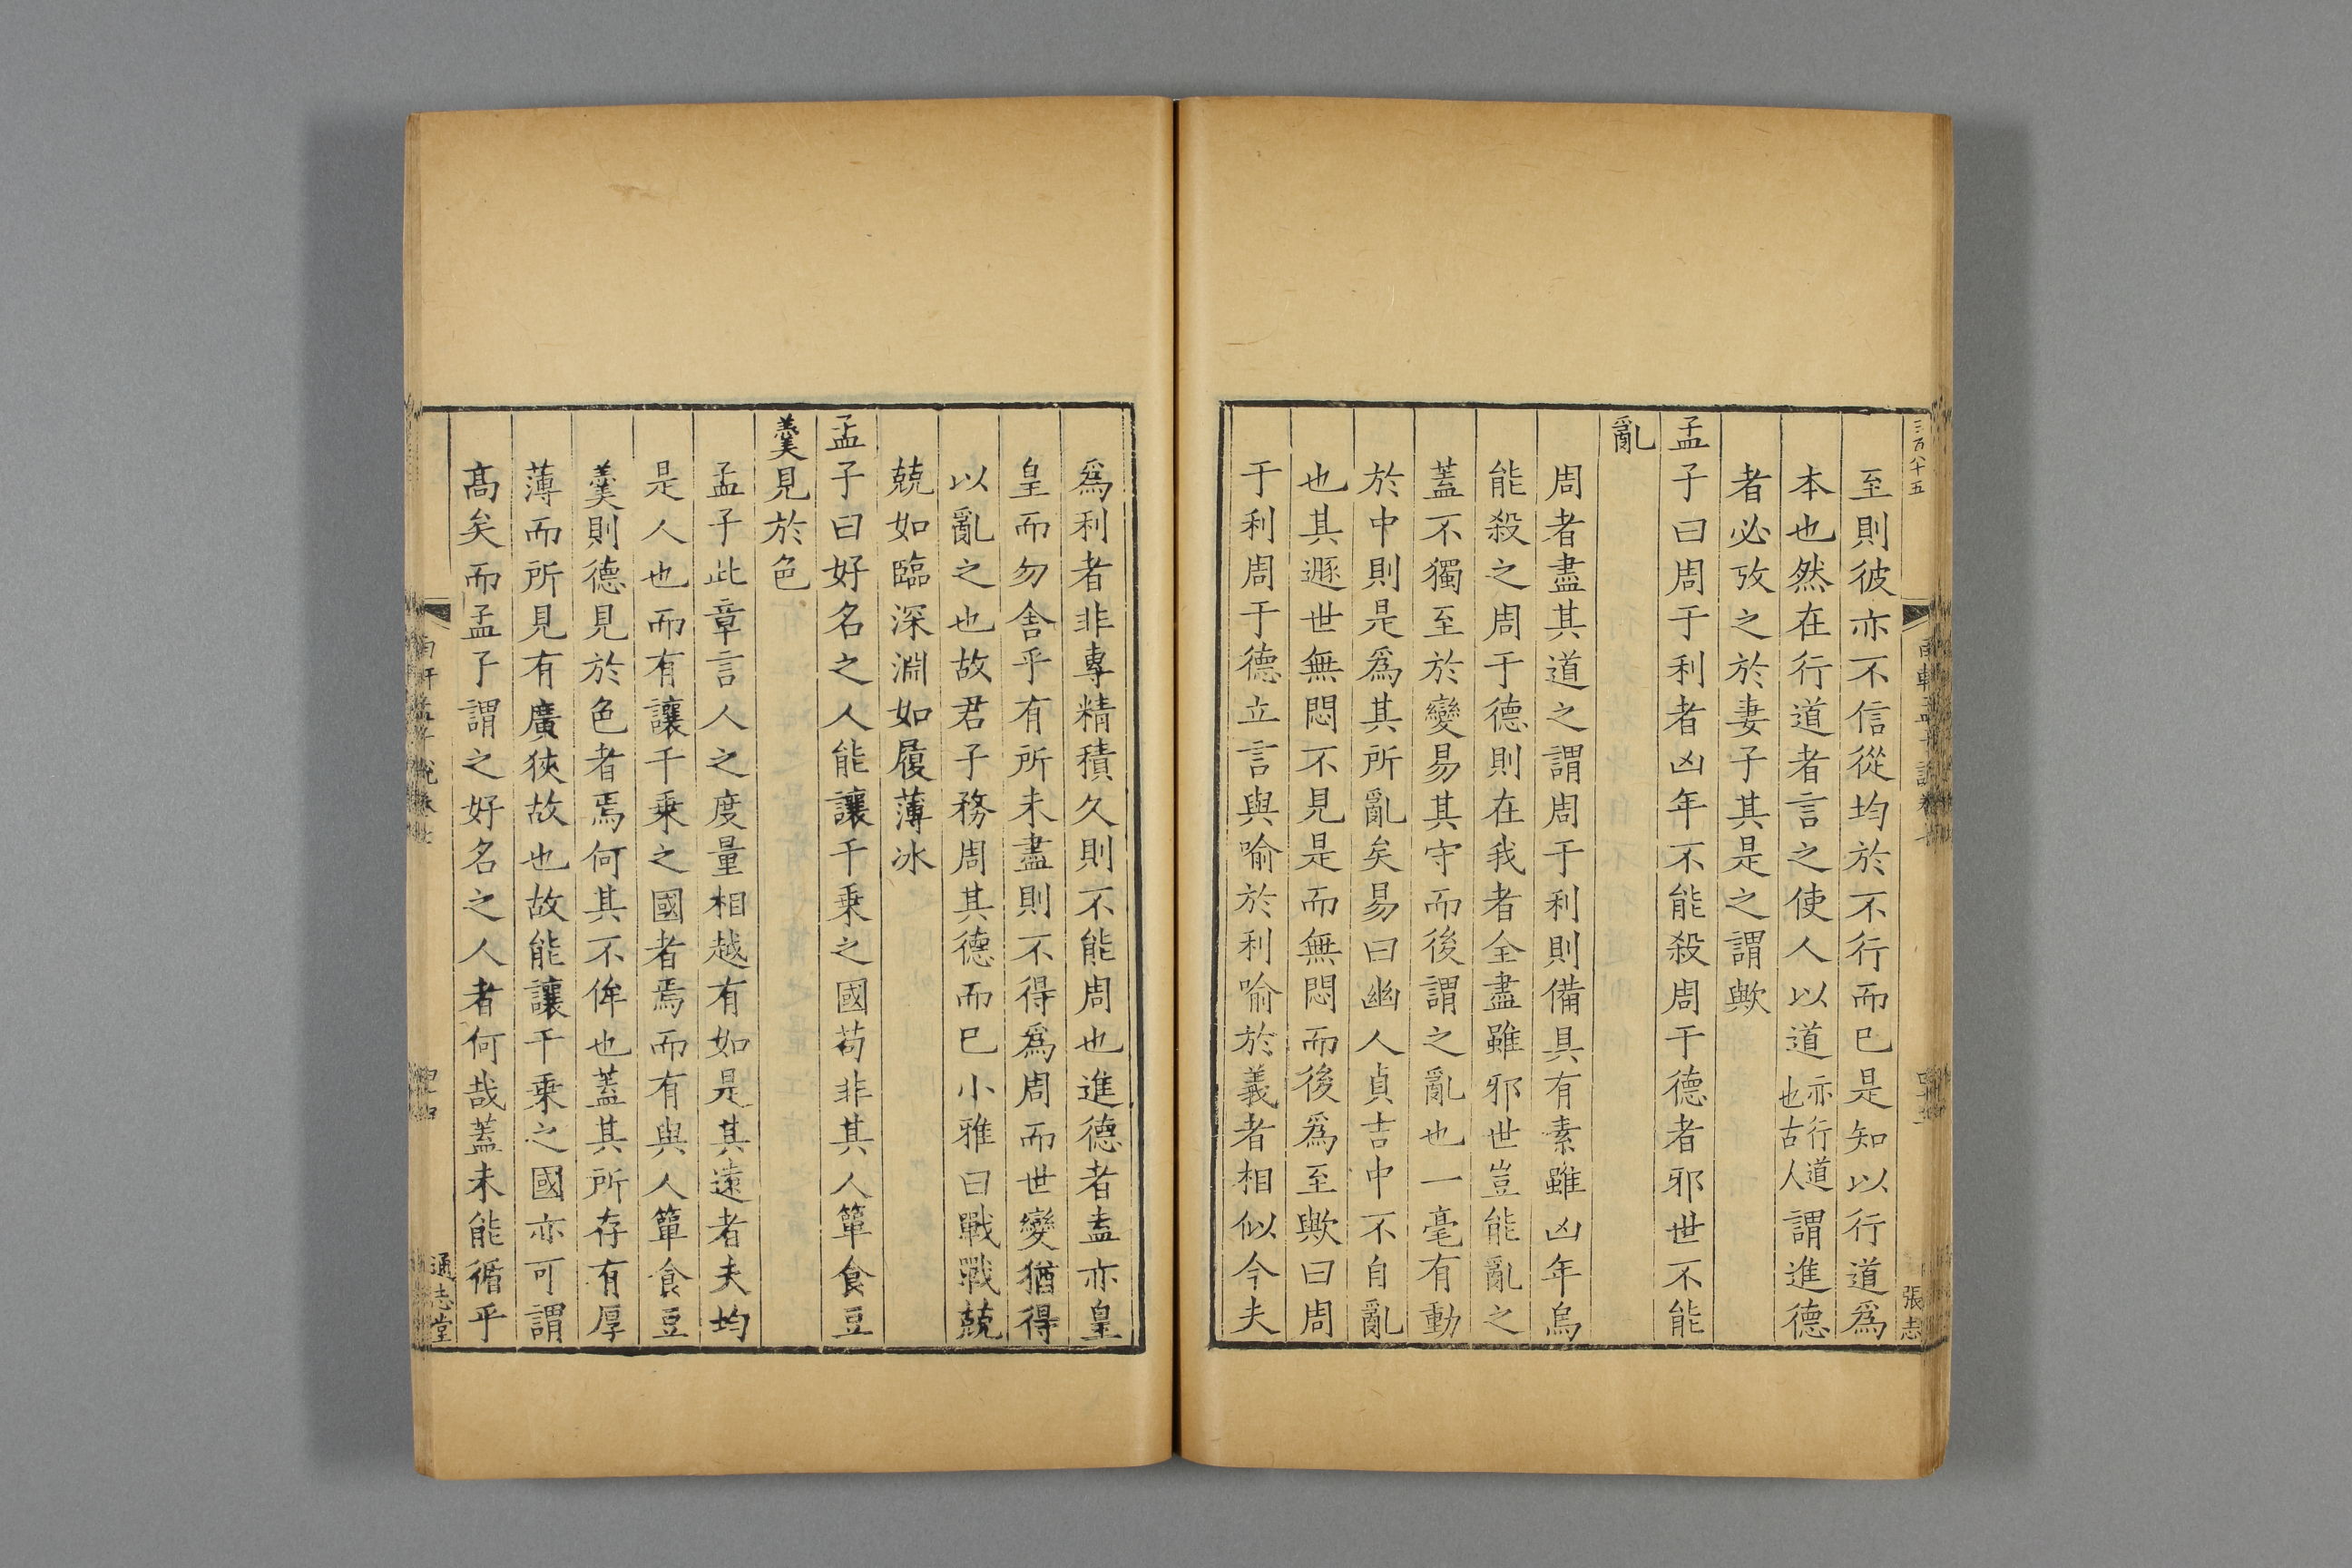 三百八十五
張志
至則彼亦不信從均於不行而已是知以行道爲
本也然在行道者言之使人以道亦行道也古人謂進德
者必攷之於妻子其是之謂歟
孟子曰周于利者凶年不能殺周于德者邪世不能
亂
周者盡其道之謂周于利則備具有素雖凶年烏
能殺之周于德則在我者全盡雖邪世豈能亂之
蓋不獨至於變易其守而後謂之亂也一毫有動
於中則是爲其所亂矣易曰幽人貞吉中不自亂
也其遯世無悶不見是而無悶而後爲至歟曰周
于利周于德立言與喻於利喻於義者相似今夫
爲利者非專精積久則不能周也進德者盍亦皇
皇而勿舍乎有所未盡則不得爲周而世變猶得
以亂之也故君子務周其德而已小雅曰戰戰兢
兢如臨深淵如履薄冰
孟子曰好名之人能讓千乗之國苟非其人簞食豆
羹見於色
孟子此章言人之度量相越有如是其遠者夫均
是人也而有讓千乗之國者焉而有與人簞食豆
羹則德見於色者焉何其不侔也蓋其所存有厚
薄而所見有廣狹故也故能讓千乗之國亦可謂
髙矣而孟子謂之好名之人者何哉蓋未能循乎
通志堂